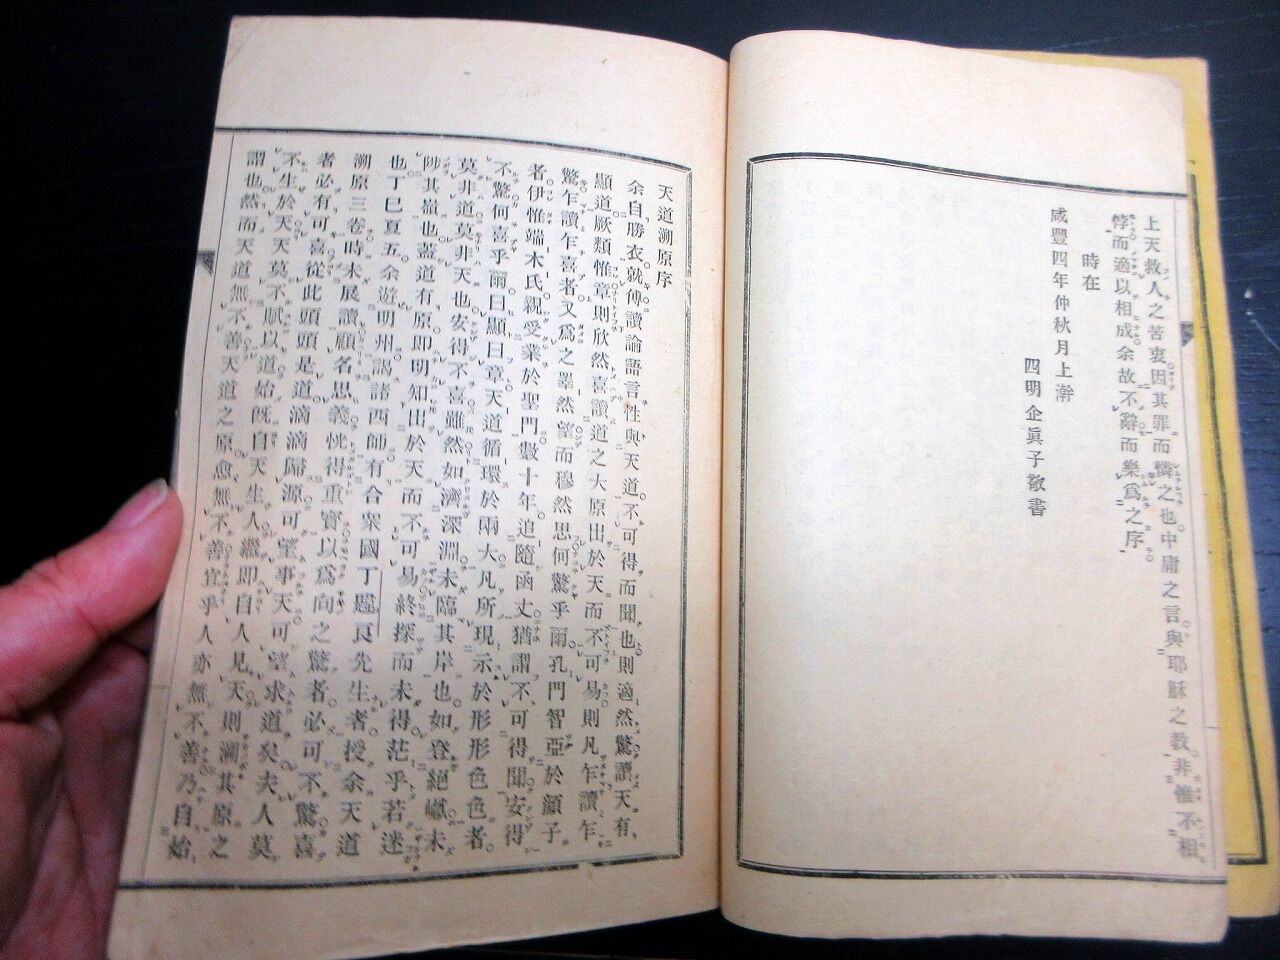 上天救人之苦衷因其罪而憐之也中庸之言與耶穌之教非惟不相
悖而適以相成余故不辭而樂爲之序
時在
咸豐四年仲秋月上澣
四明企眞子敬書
天道溯原序
余自勝衣就傅讀論語言性與天道不可得而聞也則適然驚讀天有
顯道厥類惟章則欣然喜讀道之大原出於天而不可易則凡乍讀乍
驚乍讀乍喜者又爲之睪然望而穆然思何驚乎爾孔門智亞於顏子
者伊惟端木氏親受業於聖門數十年追隨函丈猶謂不可得聞安得
不驚何喜乎爾曰顯曰章天道循環於兩大凡所現示於形形色色者
莫非道莫非天也安得不喜雖然如濟深淵未臨其岸也如登絕巘未
陟其巔也蓋道有原即明知出於天而不可易終探而未得茫乎若迷
也丁巳夏五余遊明州謁諸西師有合衆國丁韙良先生者授余天道
溯原三卷時未展讀顧名思義恍得重寶以爲向之驚者必可不驚喜
者必有可喜從此頭頭是道滴滴歸源可望事天可望求道矣夫人莫
不生於天天莫不賦以道始既自天生人繼即自人見天則溯其原之
謂也然而天道無不善天道之原愈無不善宜乎人亦無不善乃自始